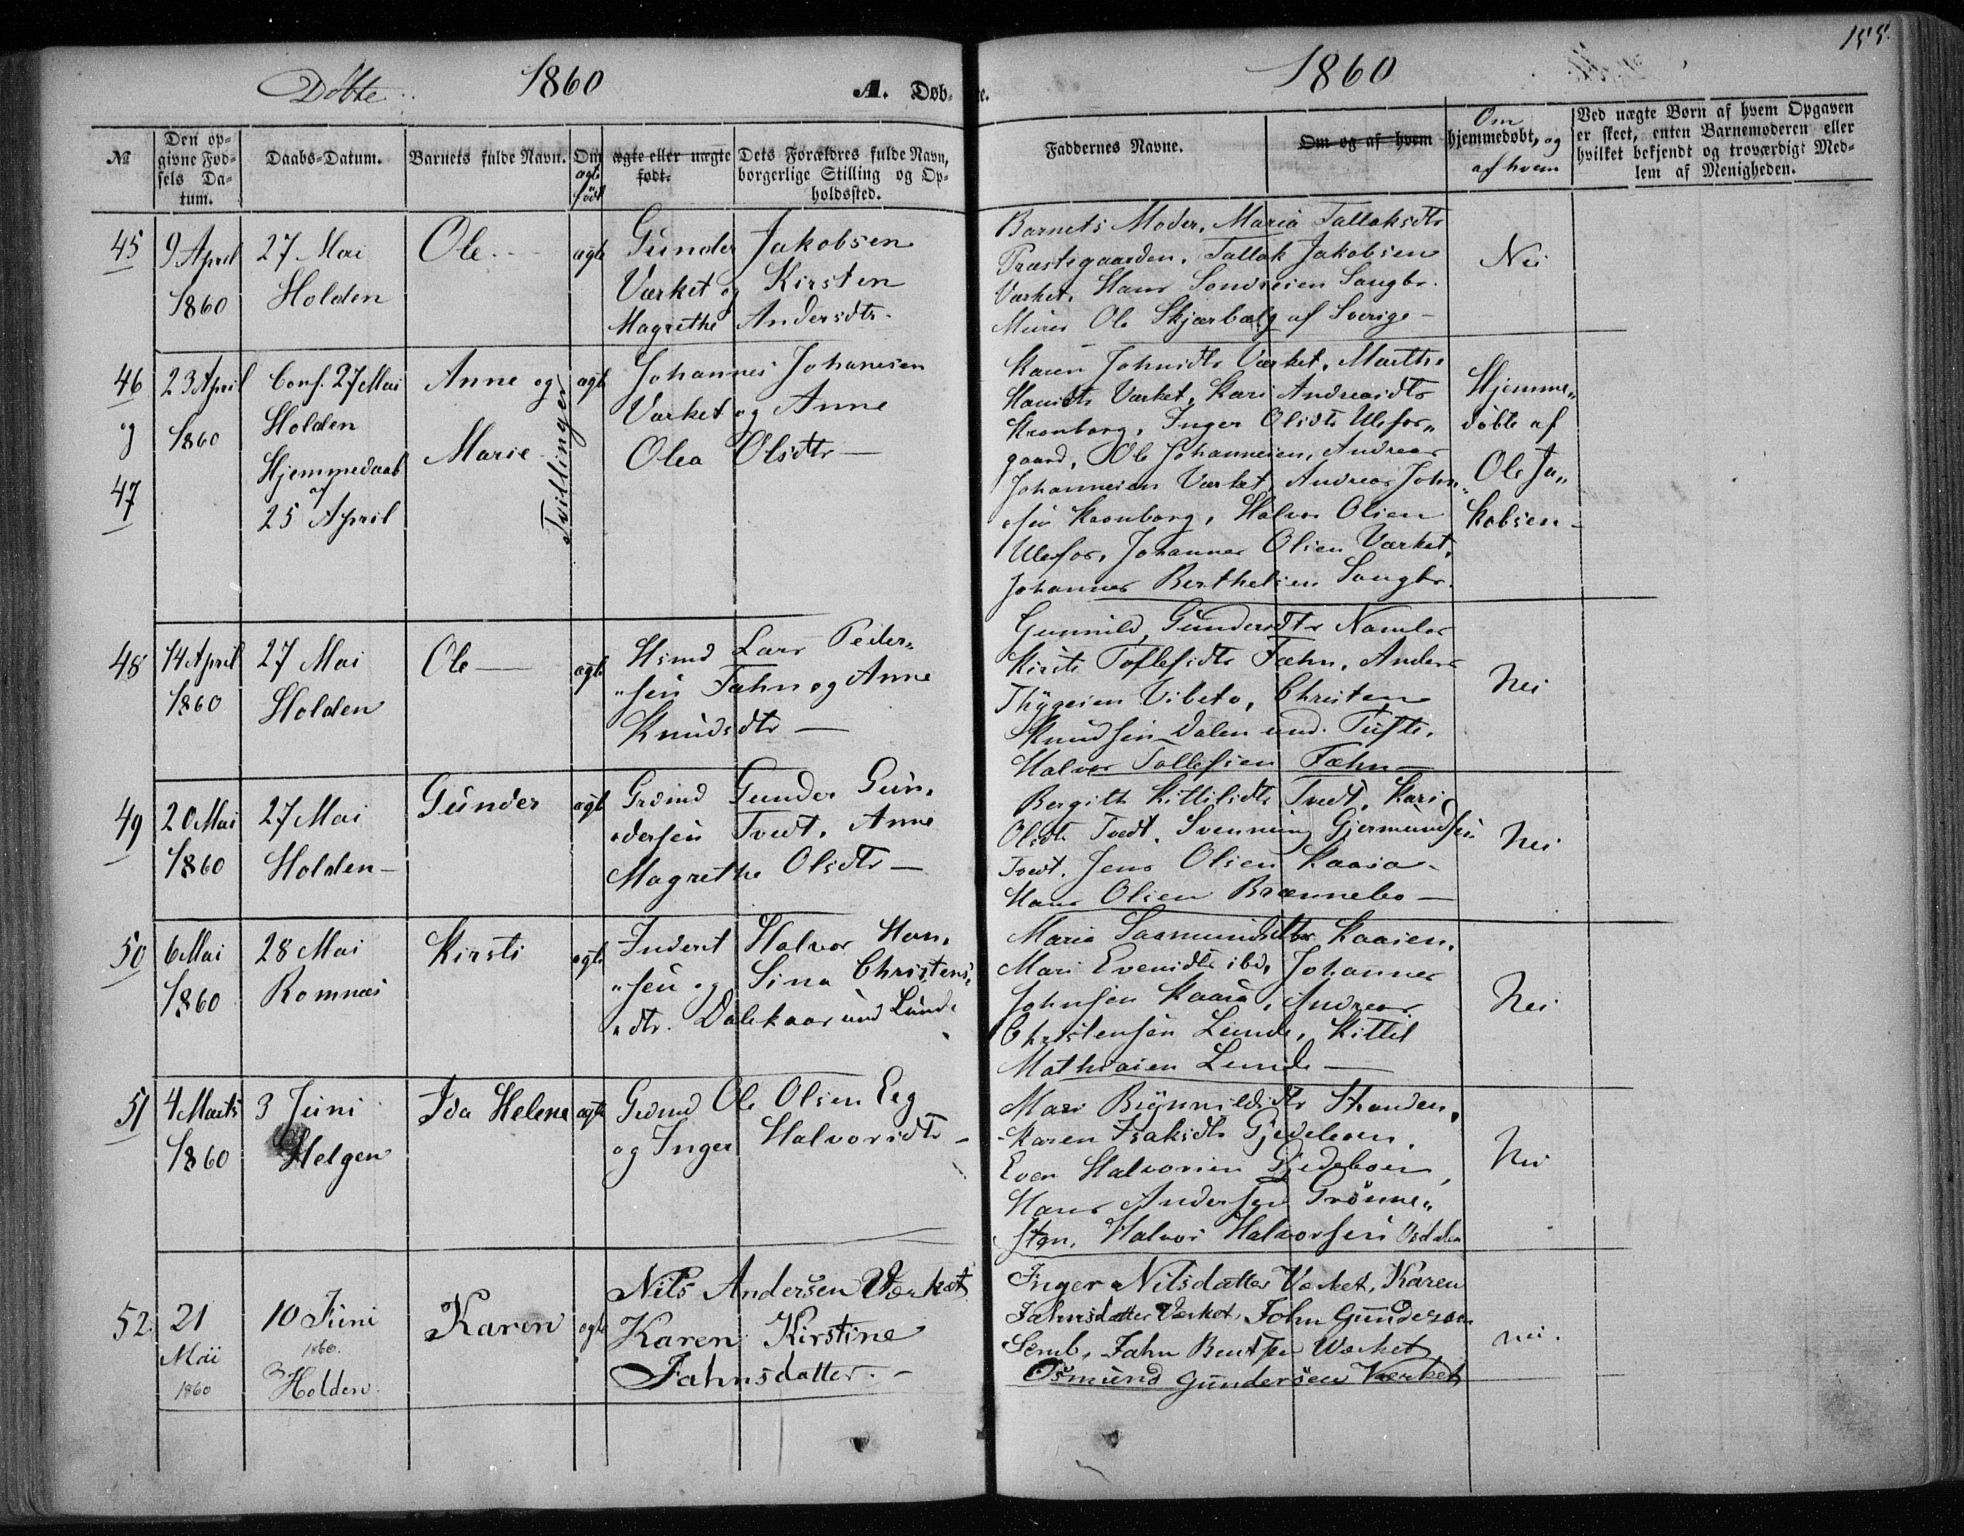 155.
Døbte. 1860 A. Døb- e. 1860
No
Den op-
givne Fød-
sels Da-
tum.
Daabs-Datum.
Barnets fulde Navn.
Om
ægte
født
ægte eller uægte
født.
Dets Forældres fulde Navn,
borgerlige Stilling og Op-
holdssted.
Faddernes Navne.
Om og af hvem
Om
hjemmedøbt, og
af hvem
Ved uægte Børn af hvem Opgaven
er skeet, enten Barnemoderen eller
hvilket bekjendt og troværdigt Med-
lem af Menigheden.
45
9 April
1860
27 Mai
Holden
Ole
ægte
Gunder Jakobsen
Værket og Kirsten
Magrethe Andersdtr.
Barnets Moder, Maria Tallaksdtr
Præstegaarden, Tallak Jakobsen
Værket, Hans Sondresen Sougbr.
Murer Ole Skjærbælg af Sverige
Nei
46
og
47
23 April
1860
Conf. 27 Mai
Holden
Hjemmedaab
af
25 April
Anne og
Marie
Tvillinger
ægte
Johannes Johanesen
Værket og Anne
Olea Olsdtr
Karen Johnsdtr Værket, Marthe
Hansdtr Værket, Kari Andreasdtr
Kronborg, Inger Olsdtr Ulefos-
gaard, Ole Johannesen, Andreas
Johannesen Værket, Andreas John-
sen Kronborg, Halvor Olsen
Ulefos, Johannes Olsen Værket,
Johannes Berthelsen Sougbr.
Hjemme-
døbte af
Ole Ja-
kobsen
48
14 April
1860
27 Mai
Holden
Ole
ægte
Husmd Lars Peder-
sen Fæhn og Anne
Knudsdtr
Gunnild Gundersdtr Namlos
Kirsti Toflefsdtr Fæhn, Anders
Thygesen Vibeto, Christen
Knudsen Dalen und. Tufte,
Halvor Tollefsen Fæhn
Nei
49
20 Mai
1860
27 Mai
Holden
Gunder
ægte
Grdmd Gunder Gun-
dersen Tvedt, Anne
Magrethe Olsdtr
Bergith Kittilsdtr Tvedt, Kari
Olsdtr Tvedt, Svenning Gjermundsen
Tvedt, Jens Olsen Kaasa
Hans Olsen Brænnebo
Nei
50
6 Mai
1860
28 Mai
Romnæs
Kirsti
ægte
Inderst Halvor Han-
sen og Sina Christens-
dtr. Dalekaas und Lunde
Maria Saamundsdtr Kaasen,
Mari Evensdtr ibd, Johannes
Johnsen Kaasa, Andreas
Christensen Lunde, Kittil
Mathiasen Lunde
Nei
51
4 Marts
1860
3 Juni
Helgen
Ida Helene
ægte
Grdmd Ole Olsen Eeg
og Inger Halvorsdtr
Mari Brynnildsdtr Stranden,
Karen Isaksdtr Gjedeboen,
Even Halvorsen Gjedeboen,
Hans Andersen Grönne-
sten, Halvor Halvorsen Osdalen
Nei
52.
21
Mai
1860
10 Juni
1860.
Holden.
Karen
ægte
Nils Andersen Værket
Karen Kirstine
Jahnsdatter.
Inger Nilsdatter Værket, Karen
Jahnsdatter Værket, John Gunderson
Semb, Jahn Bentsen Værket
Osmund Gundersen Værket
nei.